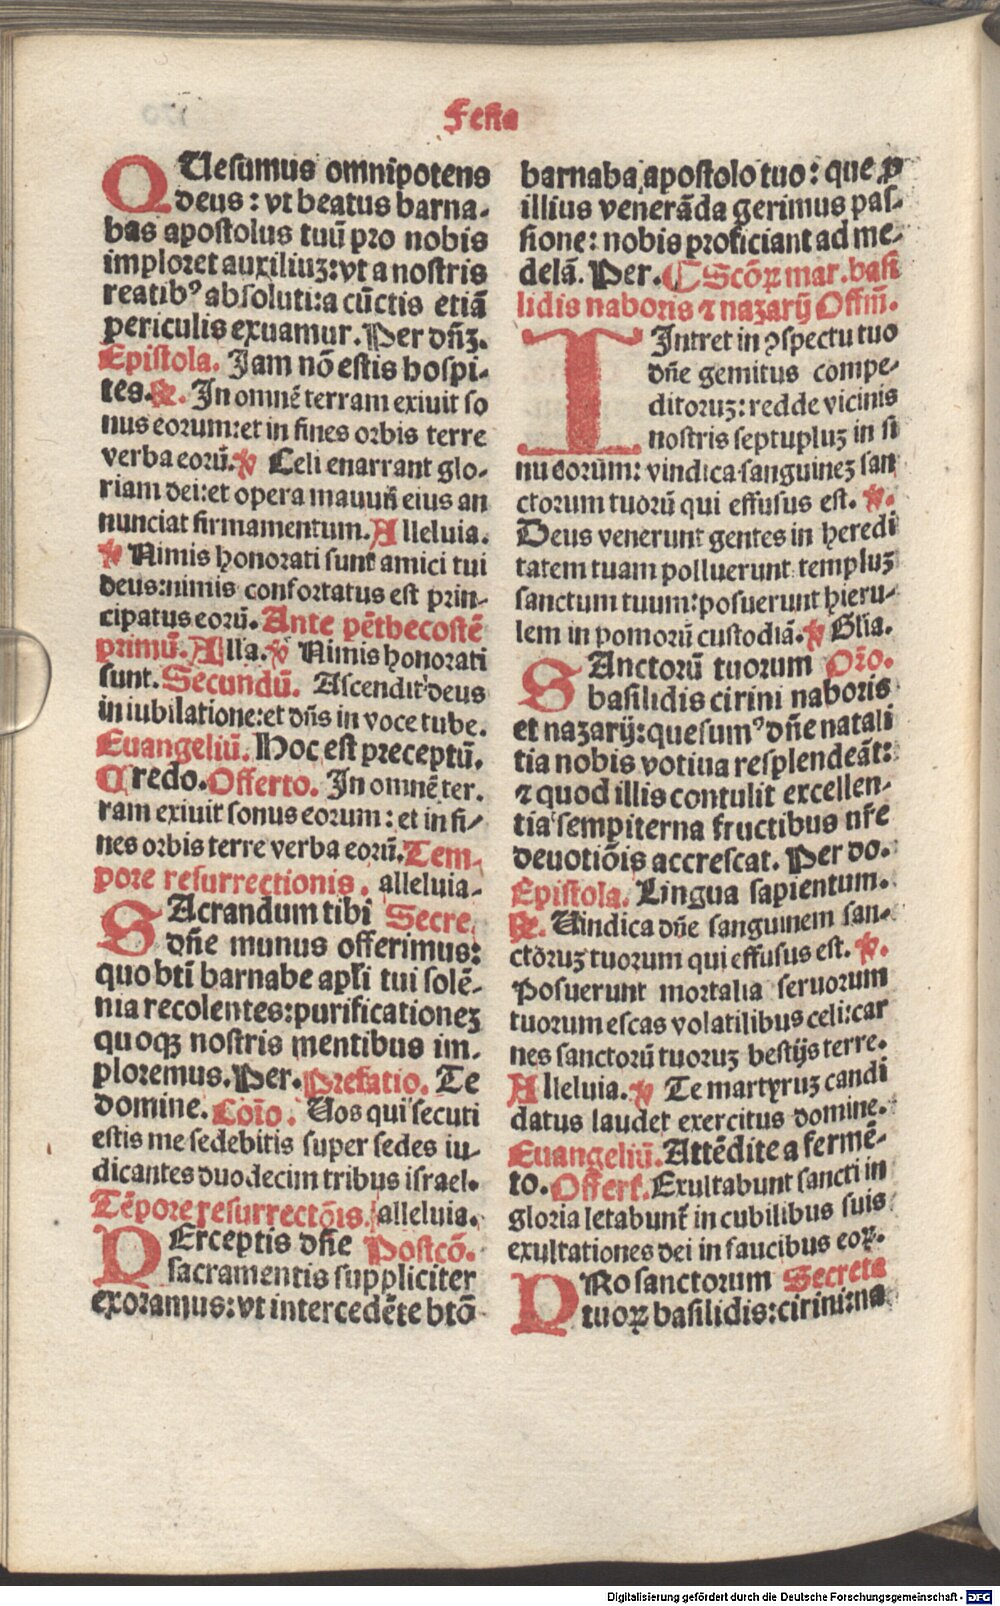 Festa
QUesumus omnipotens
deus: vt beatus barna-
bas apostolus tuũ pro nobis
imploret auxiliuʒ:vt a nostris
reatibꝰ absoluti:a cũctis etiã
periculis exuamur. Per dñʒ.
Epistola. Jam nõ estis hospi-
tes. ℟. In omnẽ terram exiuit so
nus eorum:et in fines orbis terre
verba eorũ. ℣ Celi enarrant glo-
riam dei:et opera mauuũ eius an
nunciat firmamentum. Alleluia.
℣ Nimis honorati sunt amici tui
deus:nimis confortatus est prin-
cipatus eorũ. Ante pẽthecostẽ
primũ. Alla. ℣ Nimis honorati
sunt. Secundũ. Ascendit deus
in iubilatione:et dñs in voce tube.
Euangeliũ. Hoc est preceptũ.
Credo. Offerto. In omnẽ ter.
ram exiuit sonus eorum: et in fi-
nes orbis terre verba eorũ. Tem-
pore resurrectionis. alleluia.
SAcrandum tibi Secre.
dñe munus offerimus:
quo btĩ barnabe apl̃i tui solẽ-
nia recolentes:purificationeʒ
quoqʒ nostris mentibus im-
ploremus. Per. Prefatio. Te
domine. Coĩo. Uos qui secuti
estis me sedebitis super sedes iu-
dicantes duodecim tribus israel.
Tẽpore resurrectõis. alleluia.
PErceptis dñe Postcõ.
sacramentis suppliciter
exoramus:vt intercedẽte btõ
barnaba apostolo tuo: que ꝓ
illius venerãda gerimus pas-
sione: nobis proficiant ad me-
delã. Per. ⸿ Scõꝝ mar. basi
lidis naboris ⁊ nazarij Offm̃.
INtret in ꝯspectu tuo
dñe gemitus compe-
ditoruʒ: redde vicinis
nostris septupluʒ in si
nu eorum: vindica sanguineʒ san
ctorum tuorũ qui effusus est. ℣.
Deus venerunt gentes in heredi
tatem tuam polluerunt templuʒ
sanctum tuum:posuerunt hieru-
lem in pomorũ custodiã. ℣ Glĩa.
SAnctorũ tuorum Orõ.
basilidis cirini naboris
et nazarij:quesumꝰ dñe natali
tia nobis votiua resplendeãt:
⁊ quod illis contulit excellen-
tia sempiterna fructibus nr̃e
deuotiõis accrescat. Per do.
Epistola. Lingua sapientum.
℟. Uindica dñe sanguinem san-
ctõruʒ tuorum qui effusus est. ℣.
Posuerunt mortalia seruorum
tuorum escas volatilibus celi:car
nes sanctorũ tuoruʒ bestijs terre.
Alleluia. ℣ Te martyruʒ candi
datus laudet exercitus domine.
Euangeliũ. Attẽdite a fermẽ-
to. Offert̃. Exultabunt sancti in
gloria letabunt̃ in cubilibus suis
exultationes dei in faucibus eoꝝ.
PRo sanctorum Secreta
tuoꝝ basilidis:cirini:na
Digitalisierung gefördert durch die Deutsche Forschungsgemeinschaft - DFG